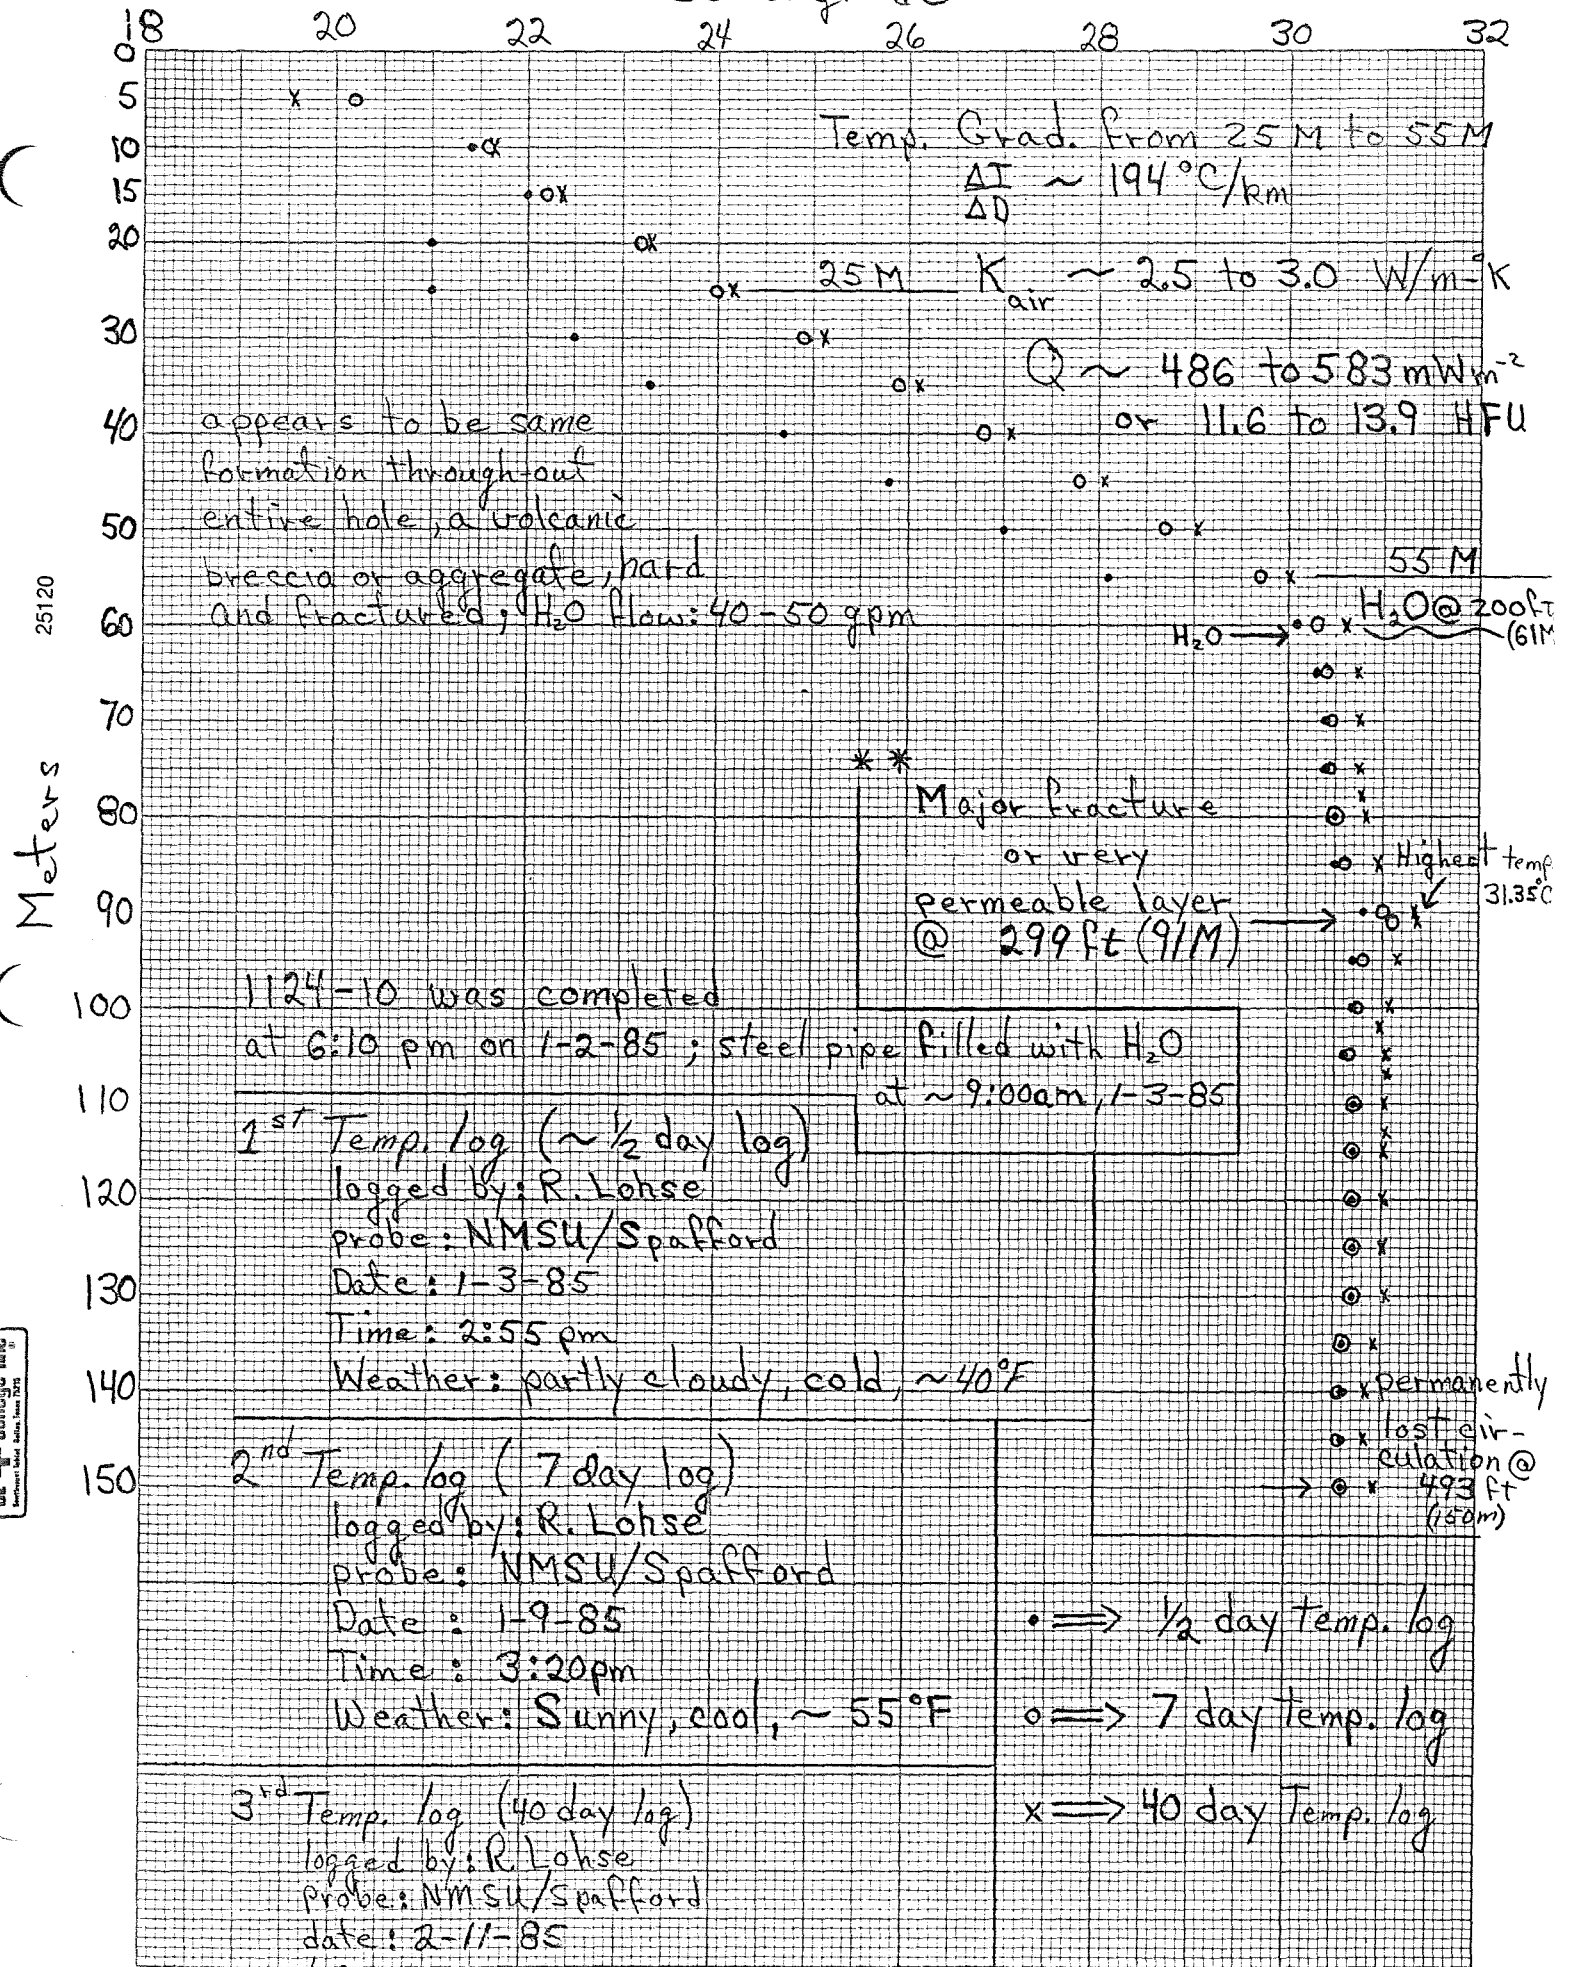 18 20 22 24 26 28 30 32
0
5
10
15
20
30
40
50
60
70
80
90
100
110
120
130
140
150
Meters
25120
Temp. Grad. from 25 M to 55 M
ΔT/ΔD ~ 194°C/km
25 M
K air ~ 2.5 to 3.0 W/m-°K
Q ~ 486 to 583 mWm⁻²
or 11.6 to 13.9 HFU
appears to be same
formation through-out
entire hole, a volcanic
breccia or aggregate, hard
and fractured; H₂O flow: 40-50 gpm
55 M
H₂O @ 200ft
(61M
H₂O →
* *
Major fracture
or very
permeable layer
@ 299 ft (91M)
Highest temp
31.35°C
1124-10 was completed
at 6:10 pm on 1-2-85; steel pipe filled with H₂O
at ~9:00am, 1-3-85
1st Temp. log (~ ½ day log)
logged by: R. Lohse
probe: NMSU/Spafford
Date: 1-3-85
Time: 2:55 pm
Weather: partly cloudy, cold, ~40°F
permanently
lost cir-
culation @
493 ft
(150m)
2nd Temp. log ( 7 day log)
logged by: R. Lohse
probe: NMSU/Spafford
Date : 1-9-85
Time : 3:20pm
Weather: Sunny, cool, ~ 55°F
• ⇒ ½ day Temp. log
o ⇒ 7 day Temp. log
x ⇒ 40 day Temp. log
3rd Temp. log (40 day log)
logged by: R. Lohse
probe: NMSU/Spafford
date: 2-11-85